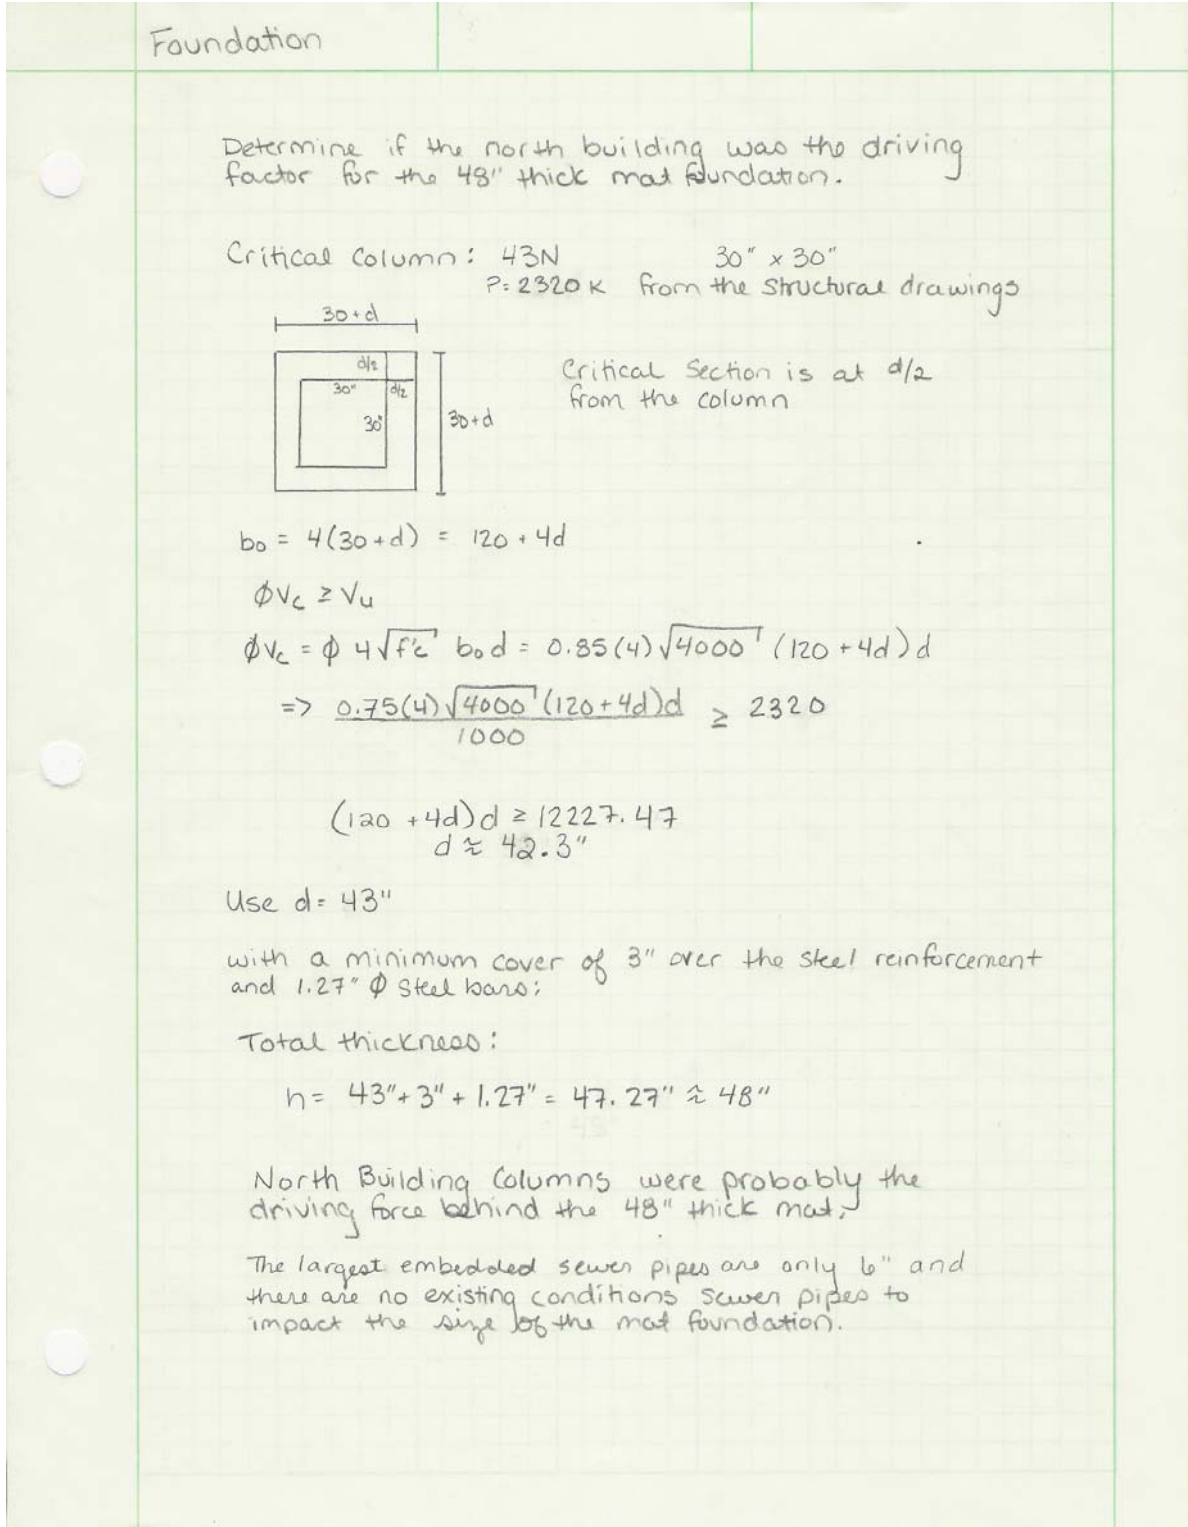 Foundation
Determine if the north building was the driving
factor for the 48" thick mat foundation.
Critical Column: 43N 30" x 30"
P= 2320 K from the structural drawings
30+d
d/2
30" d/2
30"
30+d
Critical Section is at d/2
from the column
bo = 4(30+d) = 120 + 4d
ϕVc ≥ Vu
ϕVc = ϕ 4√f'c bod = 0.85(4)√4000 (120+4d)d
=> 0.75(4)√4000 (120+4d)d ≥ 2320
1000
(120 +4d)d ≥ 12227.47
d ≈ 42.3"
Use d= 43"
with a minimum cover of 3" over the steel reinforcement
and 1.27" ϕ steel bars;
Total thickness:
h= 43"+3"+1.27" = 47.27" ≈ 48"
North Building Columns were probably the
driving force behind the 48" thick mat.
The largest embedded sewer pipes are only 6" and
there are no existing conditions sewer pipes to
impact the size of the mat foundation.